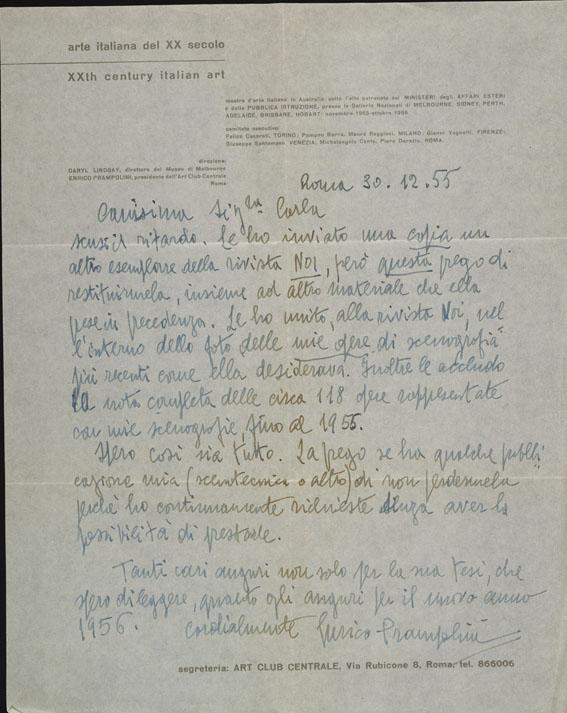 arte italiana del XX secolo
XXth century italian art
mostra d'arte italiana in Australia sotto l'alto patronato dei MINISTERI degli AFFARI ESTERI
e della PUBBLICA ISTRUZIONE, presso le Gallerie Nazionali di MELBOURNE, SIDNEY, PERTH,
ADELAIDE, BRISBANE, HOBART: novembre 1955-ottobre 1956
comitato esecutivo:
Felice Casorati, TORINO; Pompeo Borra, Mauro Reggiani, MILANO; Gianni Vagnetti, FIRENZE;
Giuseppe Santomaso, VENEZIA; Michelangelo Conte, Piero Dorazio, ROMA.
direzione:
DARYL LINDSAY, direttore del Museo di Melbourne
ENRICO PRAMPOLINI, presidente dell'Art Club Centrale
Roma
Roma 30.12.55
Carissima Sig.na Carla
scusi il ritardo. Le ho inviato una copia un
altro esemplare della rivista NOI, però questa prego di
restituirmela, insieme ad altro materiale che ella
prese in precedenza. Le ho unito, alla rivista Noi, nel
l'interno delle foto delle mie opere di scenografia
più recenti come ella desiderava. Inoltre le accludo
la nota completa delle circa 118 opere rappresentate
con mie scenografie, fino al 1955.
Spero così sia tutto. La prego se ha qualche pubbli
cazione mia (scenotecnica o altro) di non perdermela
perchè ho continuamente richieste senza aver la
possibilità di prestarle.
Tanti cari auguri non solo per la sua tesi, che
spero di leggere, quanto gli auguri per il nuovo anno
1956. cordialmente Enrico Prampolini
segreteria: ART CLUB CENTRALE, Via Rubicone 8, Roma, tel. 866006